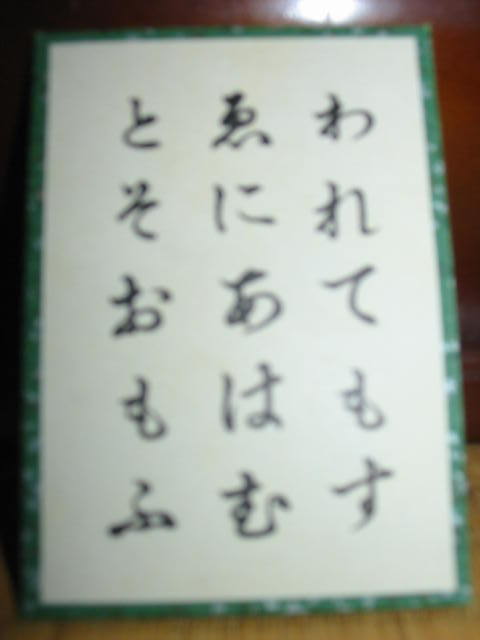 われてもす
ゑにあはむ
とそおもふ